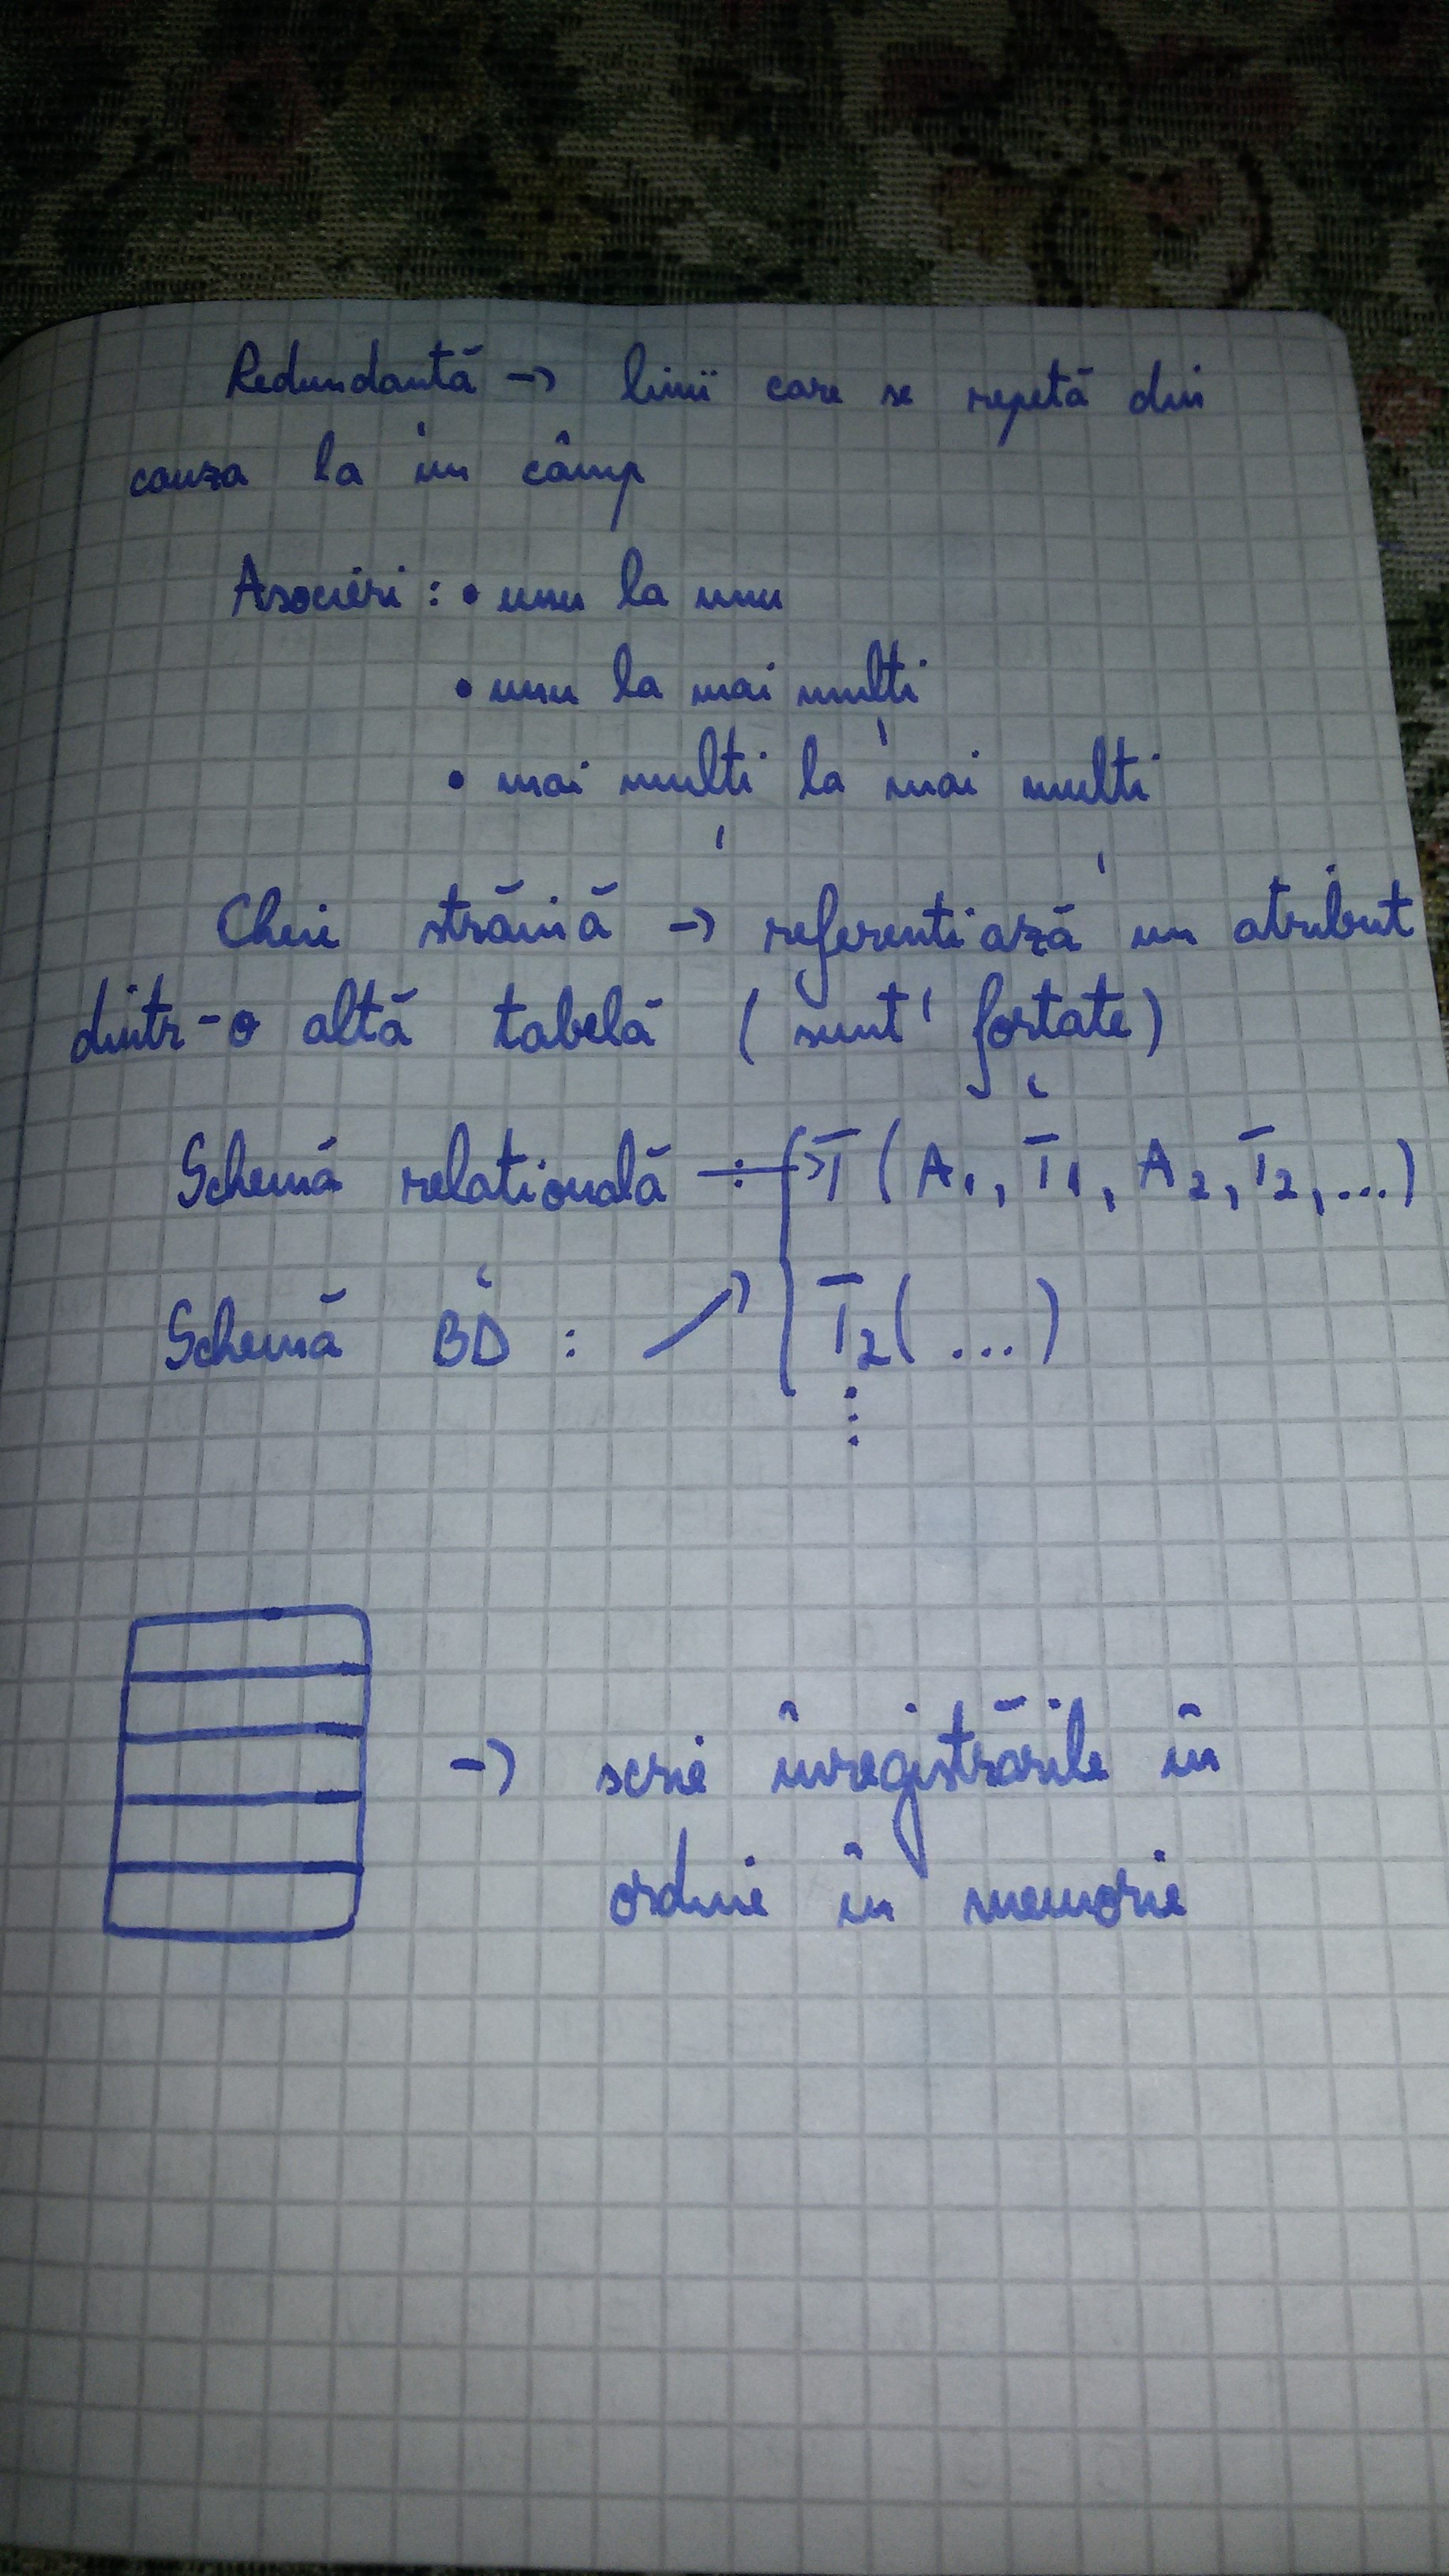 Redundanță -> linii care se repetă din
cauza la un câmp
Asocieri : • unu la unu
• unu la mai mulți
• mai mulți la mai mulți
Cheie străină -> referențiază un atribut
dintr-o altă tabelă ( sunt forțate )
Schemă relațională : -> T ( A1, T1, A2, T2, ... )
Schemă BD : T2 ( ... )
-> scrie înregistrările în
ordine în memorie